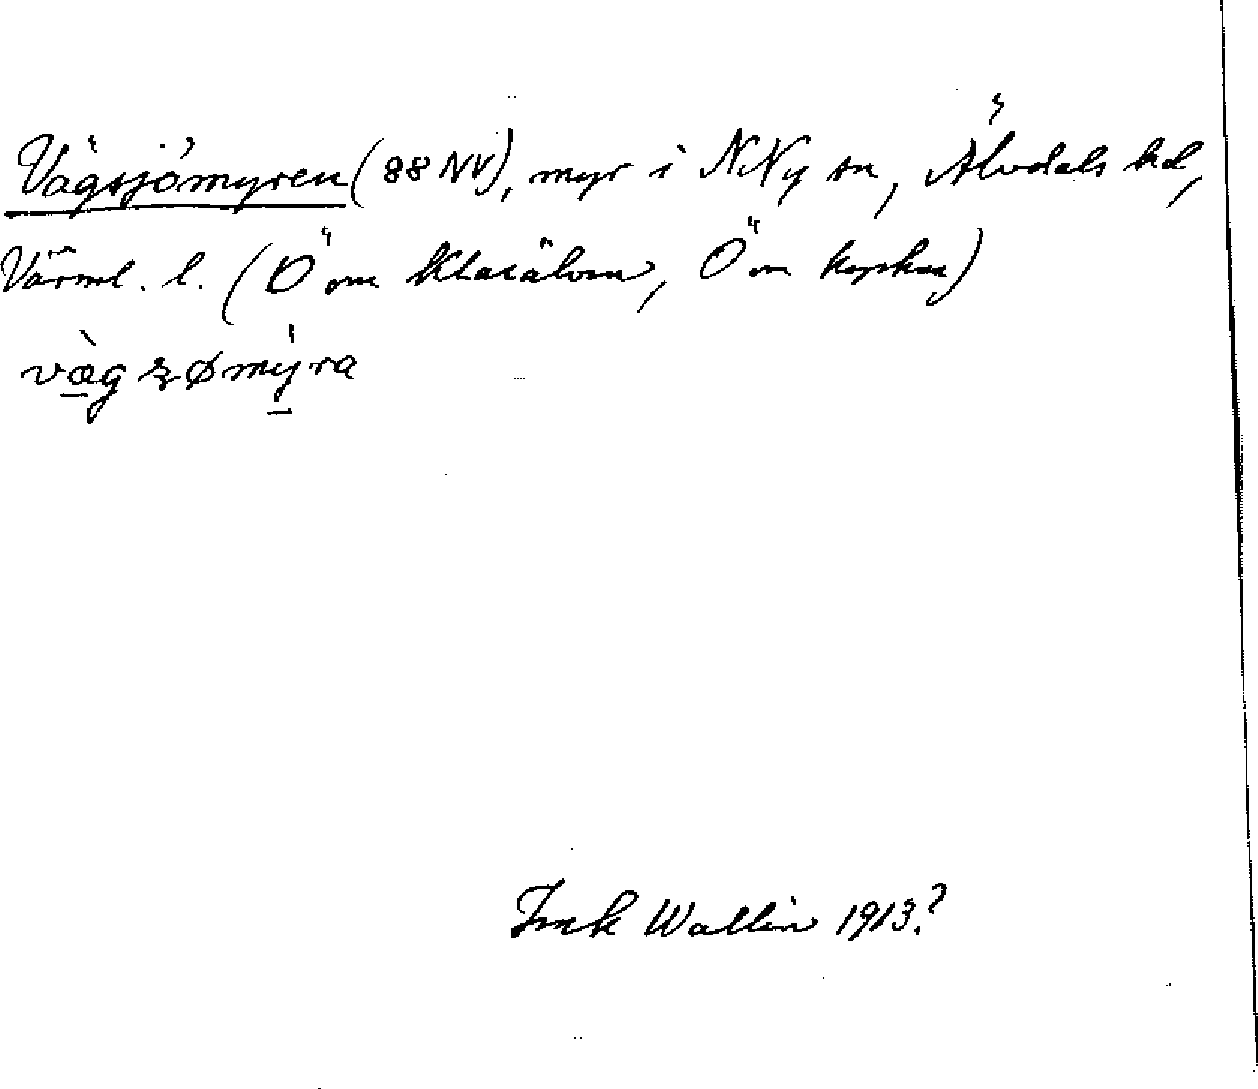 Vägsjömyren (88 NV), myr i N Ny sn, Älvdals hd,
Värml. l. (Ö om Klarälven, Ö om kyrkan)
vägsømyra
Erik Wallin 1913?